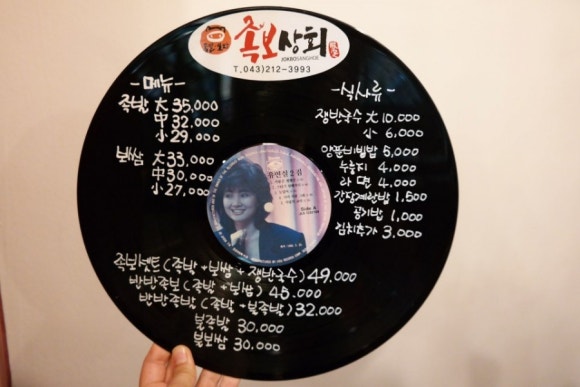 족보상회
JOKBOSANGHOE
T.043)212-3993
-메뉴-
족발 大 35,000
中 32,000
小 29,000
보쌈 大 33,000
中 30,000
小 27,000
-식사류-
쟁반국수 大 10,000
小 6,000
양푼비빔밥 5,000
누룽지 4,000
라면 4,000
간장계란밥 1,500
공기밥 1,000
김치추가 3,000
유연실 2집
Side A
족보셋트(족발+보쌈+쟁반국수) 49,000
반반족보(족발+보쌈) 45,000
반반족발(족발+불족발) 32,000
불족발 30,000
불보쌈 30,000